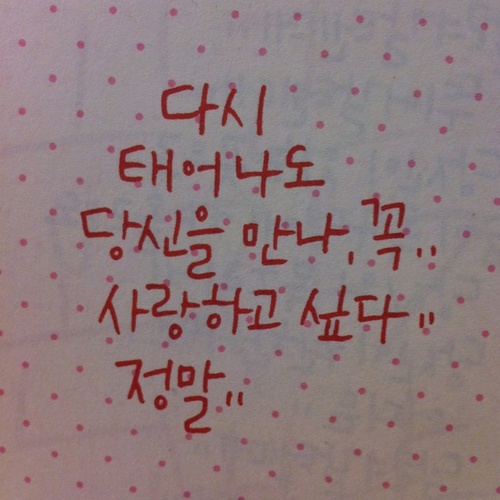 다시
태어나도
당신을 만나, 꼭..
사랑하고 싶다..
정말..